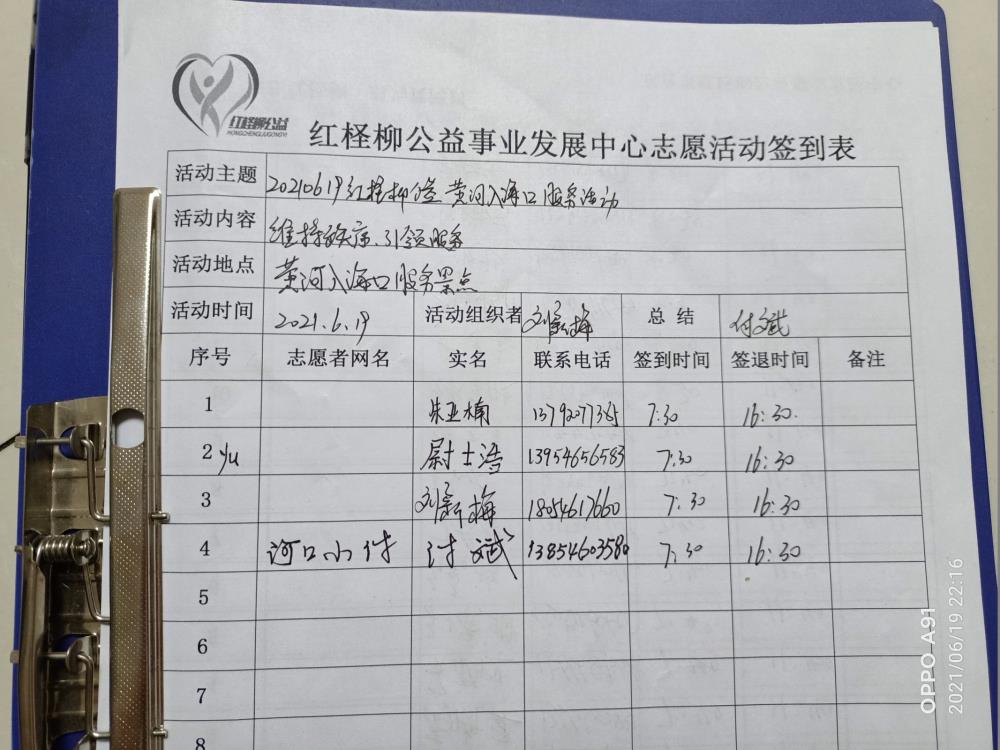 红柽柳公益
HONGCHENGLIUGONGYI
红柽柳公益事业发展中心志愿活动签到表
活动主题 20210619红柽柳公益 黄河入海口服务活动
活动内容 维持秩序、引领服务
活动地点 黄河入海口服务景点
活动时间 2021.6.19 活动组织者 刘新梅 总结 付斌
序号 志愿者网名 实名 联系电话 签到时间 签退时间 备注
1 朱亚楠 13792077365 7:30 16:30.
2 yu 尉士浩 13954656583 7:30 16:30
3 刘新梅 18054617660 7:30 16:30
4 河口小付 付斌 13854603580 7:30 16:30
5
6
7
8
OPPO A91
2021/06/19 22:16